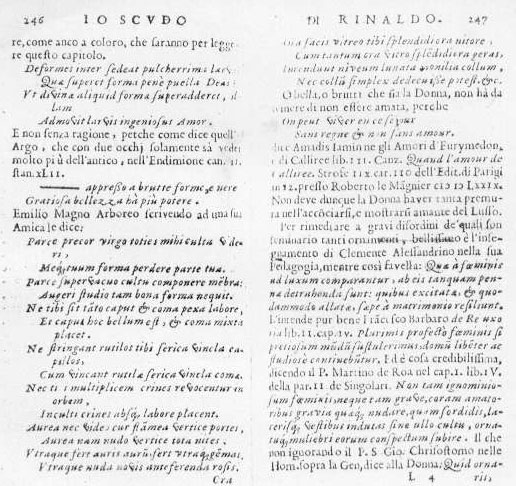 246 LO SCVDO
re, come anco a coloro, che saranno per legge
re questo capitolo.
Deformes inter sedeat pulcherrima lar
Qua superet forma penè puella Deas
Vt divina aliquid forma superadderet, il
lam
Admovit larvis ingeniosus Amor.
E non senza ragione, perche come dice quell'
Argo, che con due occhj solamente sà veder
molto più dell'antico, nell'Endimione can. 11.
stan. XLII.
appresso a brutte forme e nere
Gratiosa bellezza hà più potere.
Emilio Magno Arboreo scrivendo ad una sua
Amica le dice;
Parce precor virgo toties mihi culta vide
ri,
Meq; tuum forma perdere parte tua.
Parce supervacuo cultu componere mẽbra;
Augeri studio tam bona forma nequit.
Ne tibi sit tãto caput & coma pexa labore,
Et caput hoc bellum est, & coma mixta
placet.
Ne stringant rutilos tibi serica vincla ca
pillos,
Cum vincant rutilæ serica vincla comæ.
Nec ti i multiplicem crines revocentur in
orbem,
Inculti crines absq; labore placent.
Aurea nec video cur flãmea vertice portes,
Aurea nam nudo vertice tota nites.
Vtraque fert auris aurũ, fert vtraq; gẽmas,
Vtraque nuda novis anteferenda rosis.
Ora
DI RINALDO. 247
Ora facis vitreo tibi splendidiora nitore,
Cum tantum ora vitro splẽdidiora geras.
Induunt niveum lunata monilia collum,
Nec collũ simplex dedecuisse potest, &c.
O bella, o brutti che sia la Donna, non hà da
temere di non essere amata, perche
On peut viver en ce sejour
Sans regne & non sans amour.
dice Amadis Iamin ne gli Amori d'Eurymedon,
di Calliree lib. 111. Canz. Quand l'amour de
Calliree. Strofe IIX. car. 110 dell'Edit. di Parigi
in 12. presso Roberto le Mágnier CIↃ IↃ LXXIX.
Non deve dunque la Donna haver tanta premu-
ra nell'acconciarsi, e mostrarsi amante del Lusso.
Per rimediare a gravi disordini de' quali son
seminario tanti ornamenti, bellissimo è l'inse-
gnamento di Clemente Alessandrino nella sua
Pedagogia, mentre così favella: Quæ à fœminis
ad luxum comparantur, ab eis tanquam pen-
na detrahenda sunt: quibus excitatæ, & quo-
dammodo allatæ, sæpè à matrimonio resiliunt.
L'intende pur bene Frãcesco Barbaro de Re uxo
ria lib. 11. cap. IV. Plurimis profecto fœminis si
pretiosum mũdũ sustulerimus, domũ libẽter ac
studiose continebũtur. Ed è cosa credibilissima,
dicendo il P. Martino de Roa nel cap. 1. lib. IV.
della par. 11 de Singolari. Non tam ignominio-
sum fœminis, neque tam grave, coram amato
ribus gravia quæq; nudare, quam sordidis, la-
cerisq; vestibus indutas sine ullo cultu, ornatu-
q; muliebri eorum conspectum subire. Il che
non ignorando il P. S. Gio: Chrisostomo nelle
Hom. sopra la Gen. dice alla Donna: Quid orna-
L 4 rii,